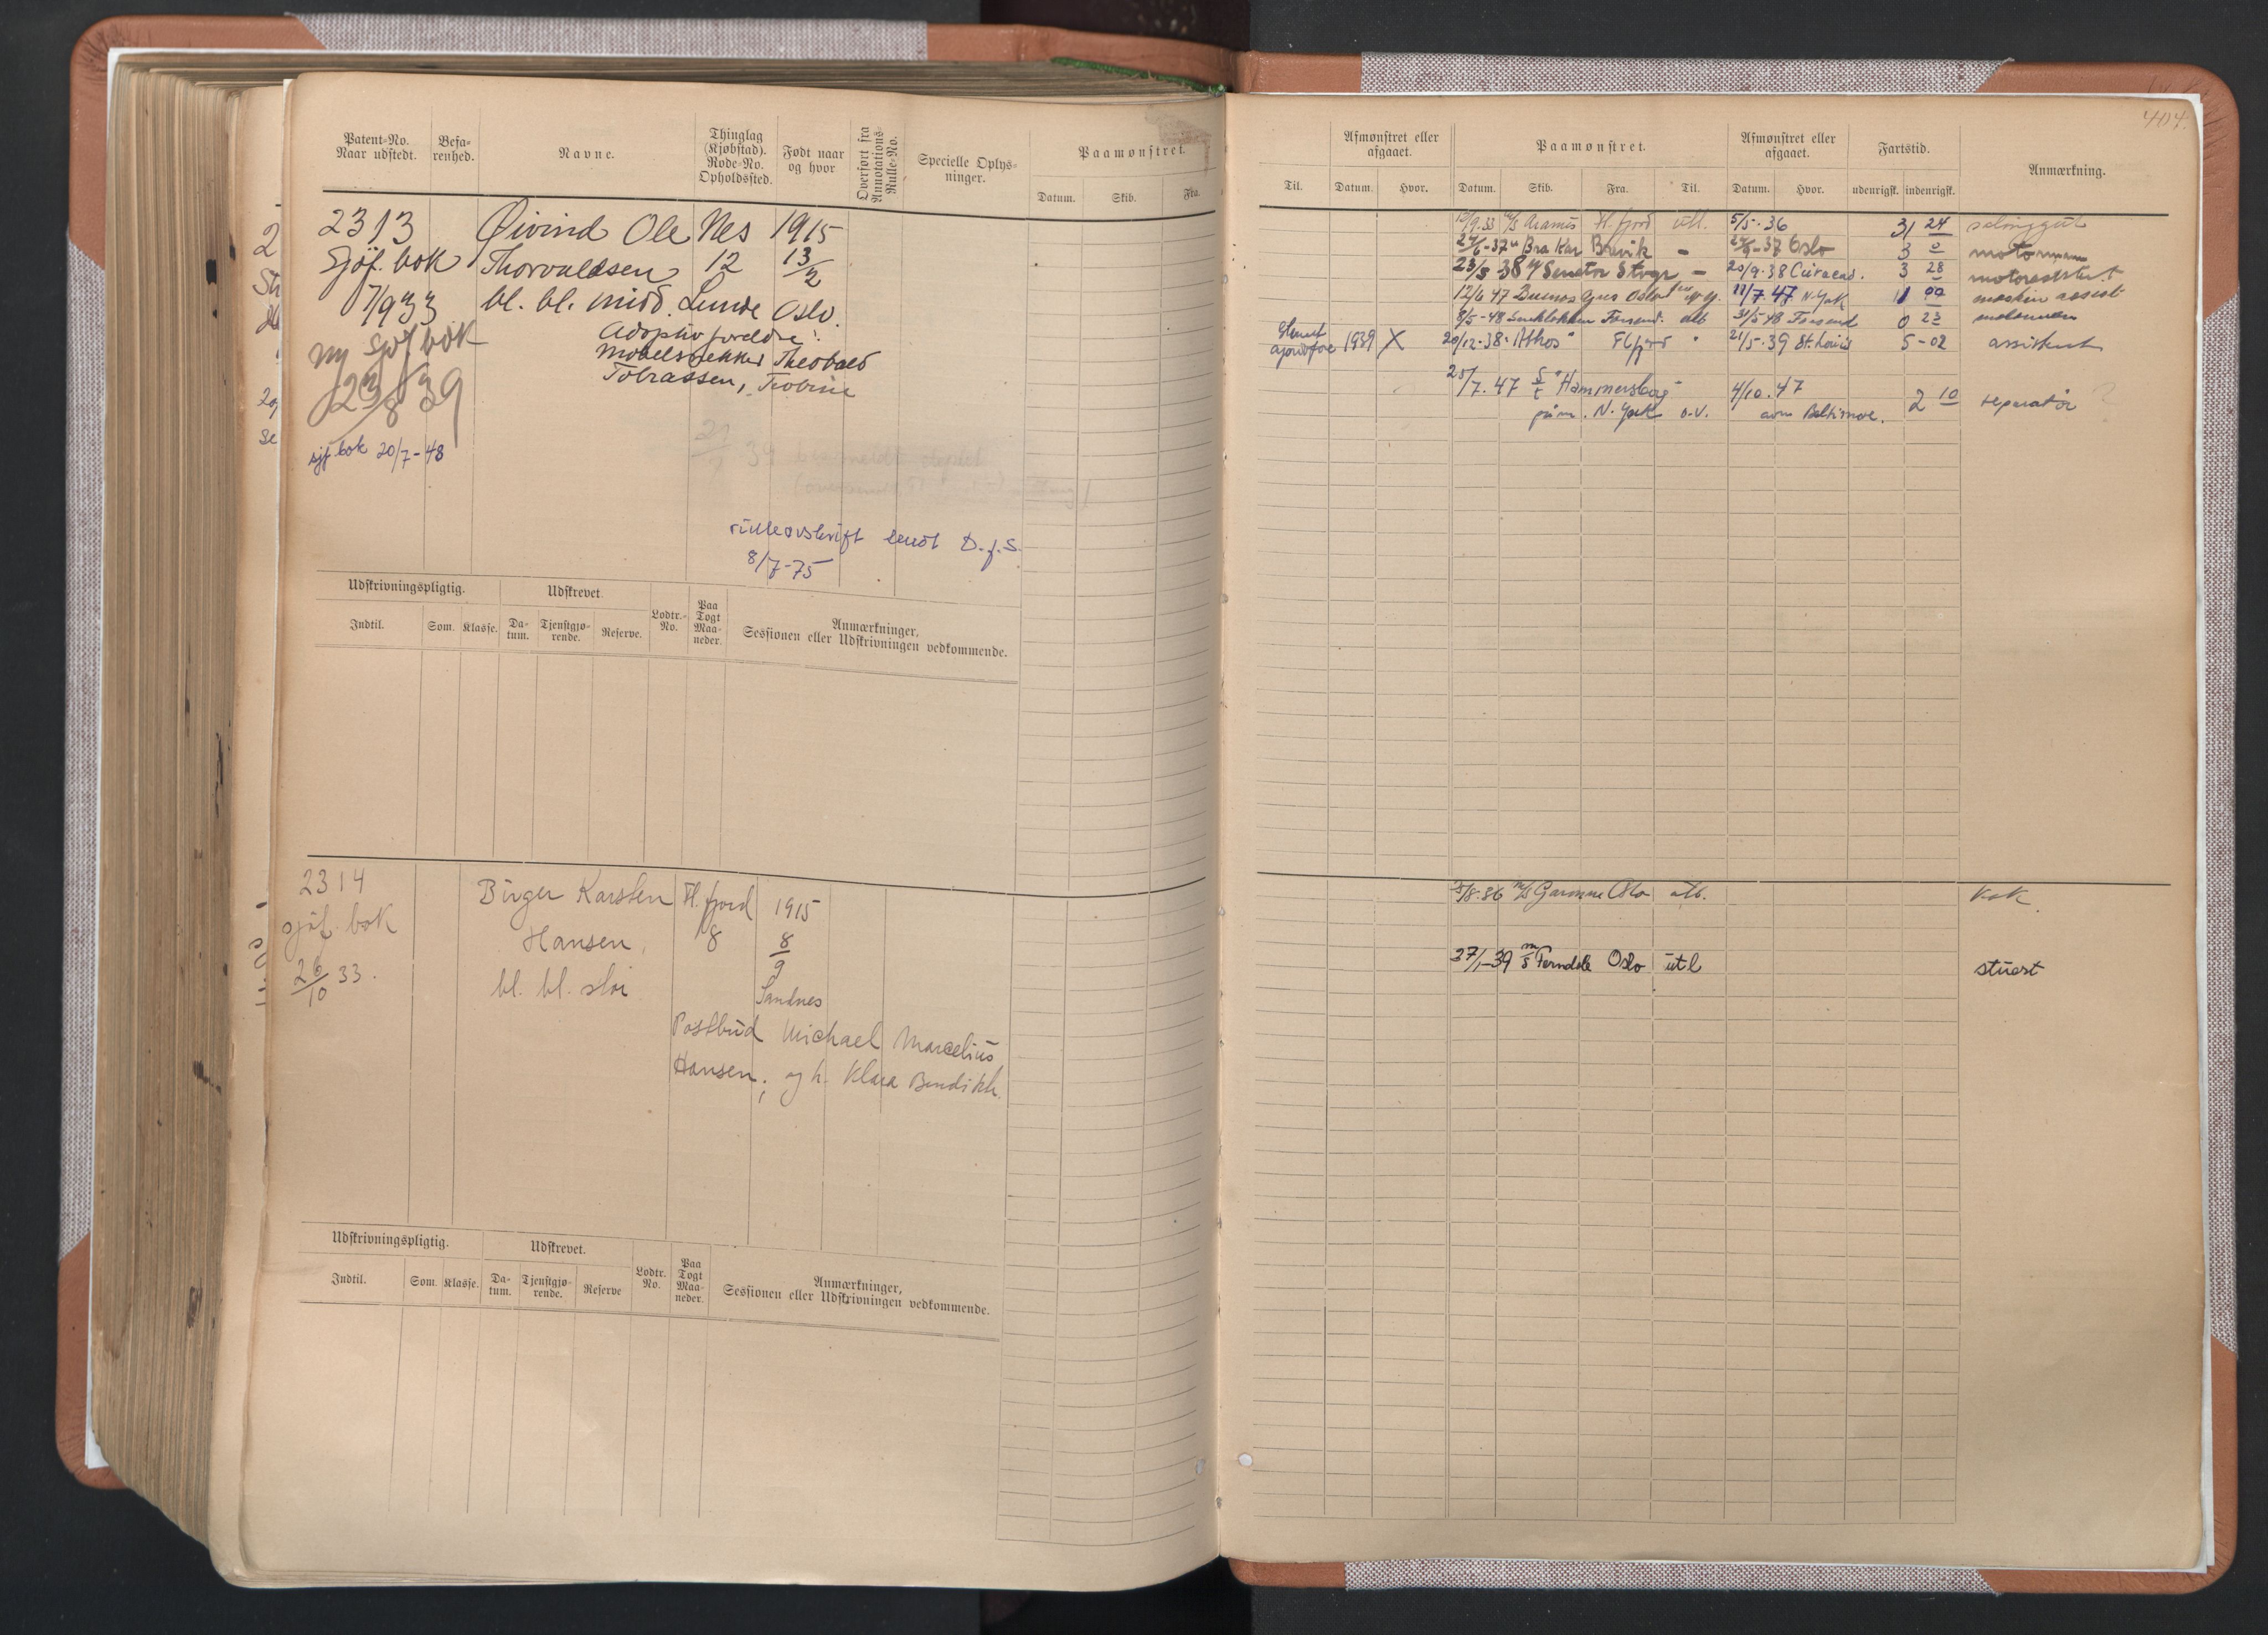 404.
Patent-No. Naar udstedt.
Befarenhed.
Navne.
Thinglag (Kjøbstad). Rode-No. Opholdssted.
Født naar og hvor
Overført fra Annotations-Rulle-No.
Specielle Oplysninger.
Paamønstret.
Datum. Skib. Fra.
Afmønstret eller afgaaet.
Paamønstret.
Afmønstret eller afgaaet.
Fartstid.
Anmærkning.
Til. Datum. Hvor. Datum. Skib. Fra. Til. Datum. Hvor. udenrigsk. indenrigsk.
2313 Øivind Ole Nes 1915
Sjøf. bok Thorvaldsen 12 13/2
7/9 33 bl. bl. midd. Lunde Oslo.
ny sjøf bok
23/8 39
Adoptivforeldre:
Møbelsnekker Theobald
Tobiassen,
sjf. bok 20/7-48
29/7 39
rulleavskrift sendt D.f.S.
8/7-75
M/S Aramis Fl. fjord utl. 5/5-36 31 24
24/6-37 Bra Kar Brevik - 37 Oslo 3 0 motormann
23/5 38 M/S Senator Stvgr - 20/9-38 Curacao. 3 28 motorassistent
12/6 47 Buenos Ayres Oslo 11/7.47 N. York maskin assist
8/5-48 31/5 48 0 23 motormann
1939 X 20/12-38 Athos Fl.fjord " 21/5-39 St. Louis 5-02 assistent
25/7.47 S/T "Hammersborg" 4/10.47 2 10 reparatør
påm. N. York o.v. avm Baltimore.
Udskrivningspligtig. Udskrevet. Lodtr.-No. Paa Togt Maaneder. Anmærkninger, Sessionen eller Udskrivningen vedkommende.
Indtil. Som. Klasse. Datum. Tjenstgjørende. Reserve.
2314 Birger Karsten Fl. fjord 1915
sjøf. bok Hansen, 8 8/9
26/10 33. bl. bl. stor Sandnes
Postbud Michael Marcelius
Hansen, og h. Klara Bendikte.
M/S Garonne Oslo utl. kok
27/1-39 m/s Ferndale Oslo utl stuert
Udskrivningspligtig. Udskrevet. Lodtr. No. Paa Togt Maaneder. Anmærkninger, Sessionen eller Udskrivningen vedkommende.
Indtil. Som. Klasse. Datum. Tjenstgjørende. Reserve